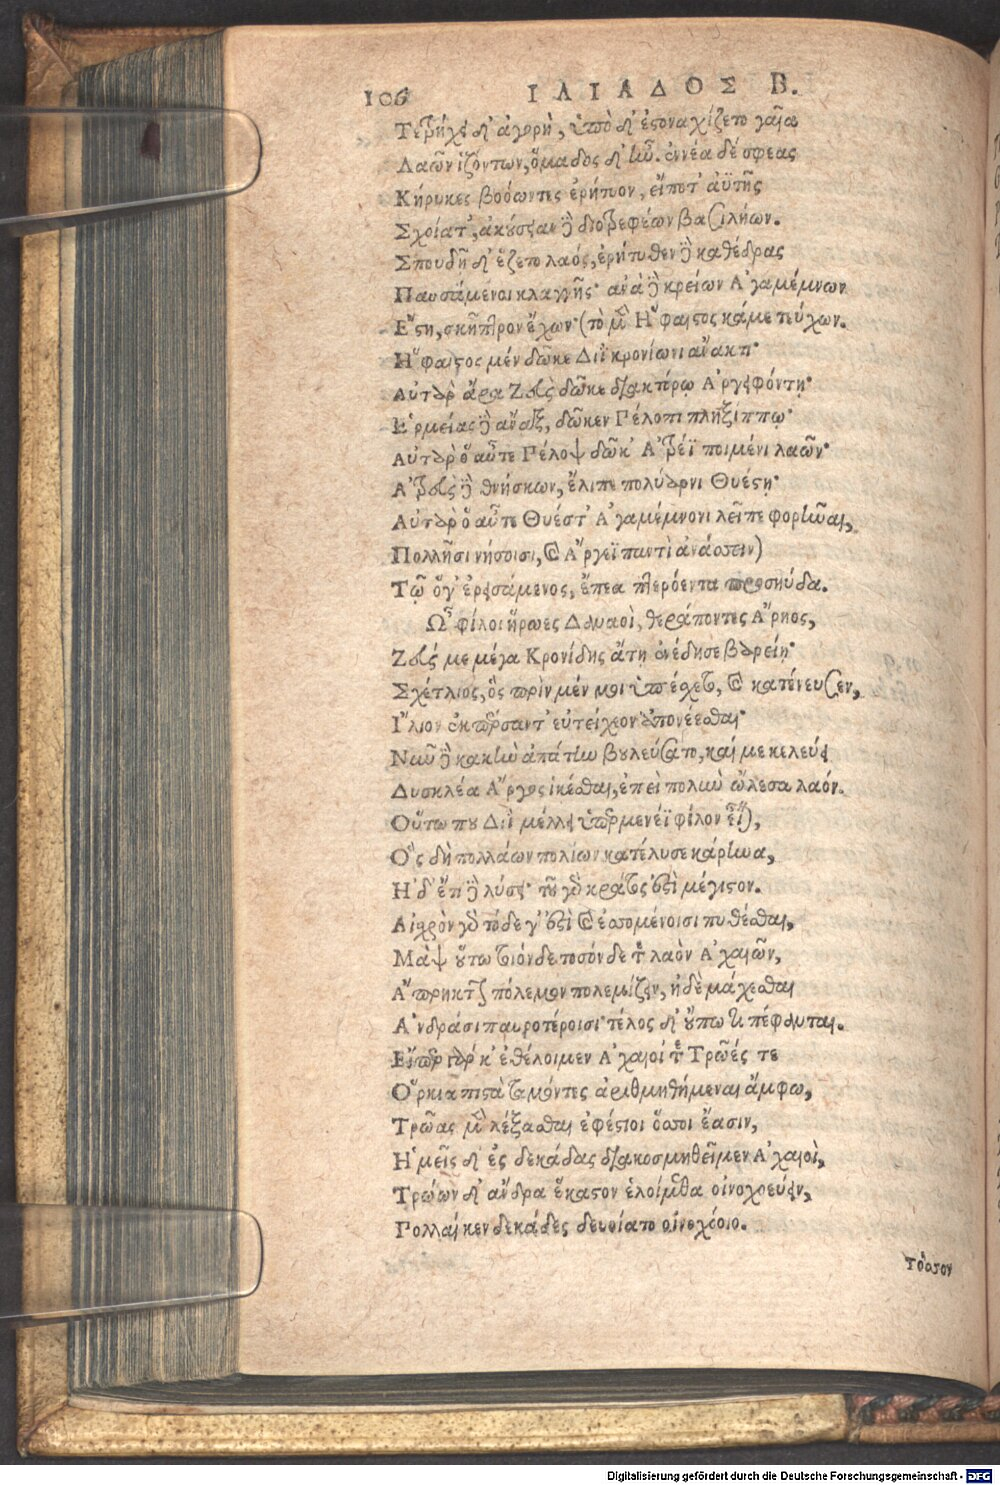 106 ΙΛΙΑΔΟΣ Β.
Τετρήχει δ' ἀγορὴ, ὑπὸ δ' ἐστοναχίζετο γαῖα
Λαῶν ἱζόντων, ὅμαδος δ' ἦν. ἐννέα δέ σφεας
Κήρυκες βοόωντες ἐρήτυον, εἴποτ' ἀϋτῆς
Σχοίατ', ἀκούσειαν δὲ διοτρεφέων βασιλήων.
Σπουδῆ δ' ἕζετο λαός, ἐρήτυθεν δὲ καθέδρας
Παυσάμενοι κλαγγῆς· ἀνὰ δὲ κρείων Ἀγαμέμνων
Ἔστη, σκῆπτρον ἔχων· (τὸ μὲν Ἥφαιστος κάμε τεύχων.
Ἥφαιστος μὲν δῶκε Διῒ κρονίωνι ἄνακτι·
Αὐτὰρ ἄρα Ζεὺς δῶκε διακτόρῳ Ἀργειφόντῃ·
Ἑρμείας δὲ ἄναξ, δῶκεν Πέλοπι πληξίππῳ·
Αὐτὰρ ὁ αὖτε Πέλοψ δῶκ' Ἀτρέϊ ποιμένι λαῶν·
Ἀτρεὺς δὲ θνήσκων, ἔλιπε πολύαρνι Θυέστῃ·
Αὐτὰρ ὁ αὖτε Θυέστ' Ἀγαμέμνονι λεῖπε φορῆναι,
Πολλῇσι νήσοισι, καὶ Ἄργεϊ παντὶ ἀνάσσειν)
Τῷ ὅγ' ἐρεισάμενος, ἔπεα πτερόεντα προσηύδα.
Ὦ φίλοι ἥρωες Δαναοὶ, θεράποντες Ἄρηος,
Ζεύς με μέγα Κρονίδης ἄτῃ ἐνέδησε βαρείῃ·
Σχέτλιος, ὃς πρὶν μέν μοι ὑπέσχετο, καὶ κατένευσεν,
Ἴλιον ἐκπέρσαντ' εὐτείχεον ἀπονέεσθαι·
Νῦν δὲ κακὴν ἀπάτην βουλεύσατο, καί με κελεύει
Δυσκλέα Ἄργος ἱκέσθαι, ἐπεὶ πολὺν ὤλεσα λαόν.
Οὕτω που Διῒ μέλλει ὑπερμενέϊ φίλον εἶναι,
Ὃς δὴ πολλάων πολίων κατέλυσε κάρηνα,
Ἠδ' ἔτι δὲ λύσει· τοῦ γὰρ κράτος ἐστὶ μέγιστον.
Αἰσχρὸν γὰρ τόδε γ' ἐστὶ καὶ ἐσσομένοισι πυθέσθαι,
Μὰψ οὕτω τοιόνδε τοσόνδε τε λαὸν Ἀχαιῶν,
Ἄπρηκτον πόλεμον πολεμίζειν, ἠδὲ μάχεσθαι
Ἀνδράσι παυροτέροισι· τέλος δ' οὔπω τι πέφανται.
Εἴπερ γάρ κ' ἐθέλοιμεν Ἀχαιοί τε Τρῶές τε
Ὅρκια πιστὰ ταμόντες ἀριθμηθήμεναι ἄμφω,
Τρῶας μὲν λέξασθαι ἐφέστιοι ὅσσοι ἔασιν,
Ἡμεῖς δ' ἐς δεκάδας διακοσμηθεῖμεν Ἀχαιοὶ,
Τρώων δ' ἄνδρα ἕκαστον ἑλοίμεθα οἰνοχοεύειν,
Πολλαί κεν δεκάδες δευοίατο οἰνοχόοιο.
Τόσσον
Digitalisierung gefördert durch die Deutsche Forschungsgemeinschaft - DFG